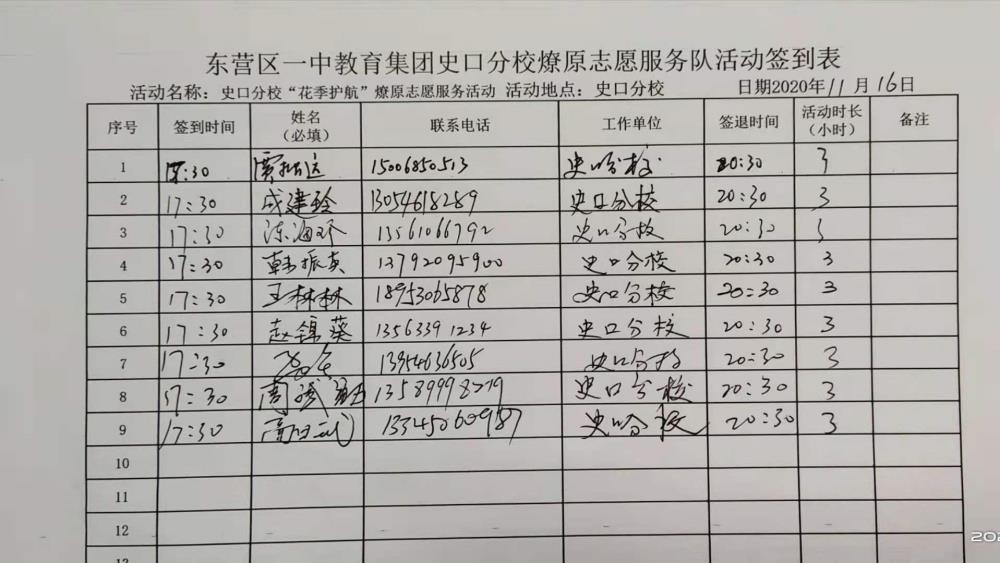 东营区一中教育集团史口分校燎原志愿服务队活动签到表
活动名称：史口分校“花季护航”燎原志愿服务活动 活动地点：史口分校 日期2020年11月16日
序号 签到时间 姓名（必填） 联系电话 工作单位 签退时间 活动时长（小时） 备注
1 17:30 15006850513 史口分校 20:30 3
2 17:30 成建玲 13054618289 史口分校 20:30 3
3 17:30 陈海环 13561066792 史口分校 20:30 3
4 17:30 韩振英 13792095900 史口分校 20:30 3
5 17:30 王林林 18953065878 史口分校 20:30 3
6 17:30 赵锦葵 13563391234 史口分校 20:30 3
7 17:30 13954636505 史口分校 20:30 3
8 17:30 周 13589998279 史口分校 20:30 3
9 17:30 13345060987 史口分校 20:30 3
10
11
12
13
202